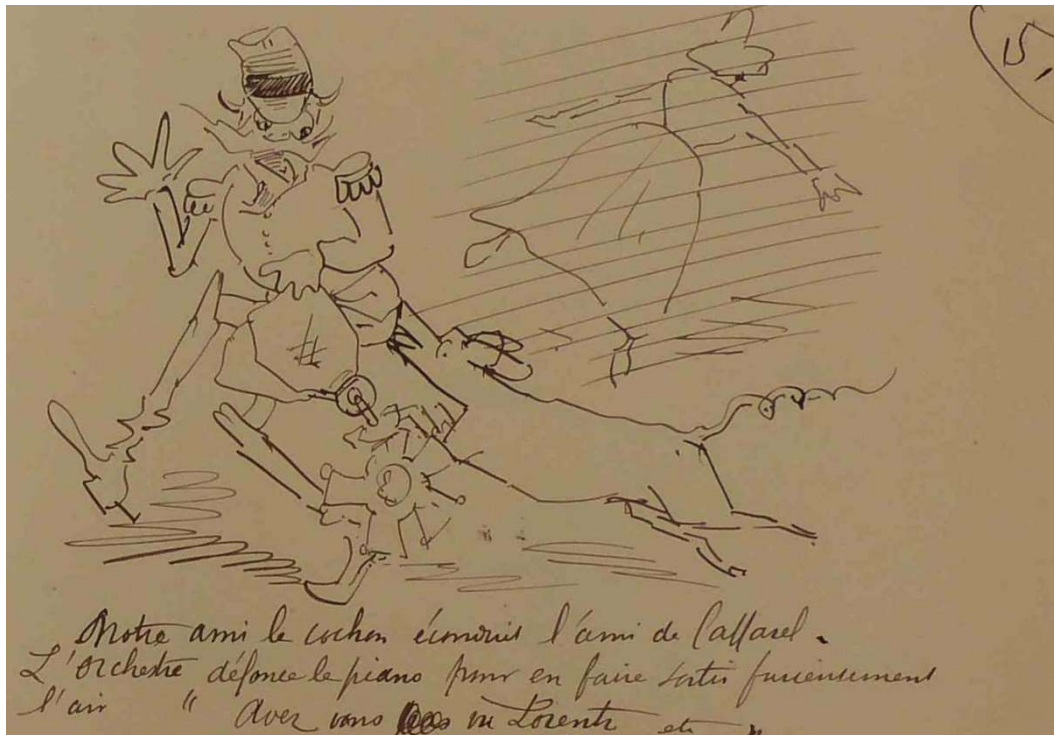 5,
Notre ami le cochon éconduit l'ami de Caffarel.
L'Orchestre défonce le piano pour en faire sortir furieusement
l'air " Avez vous vu Lorentz etc "